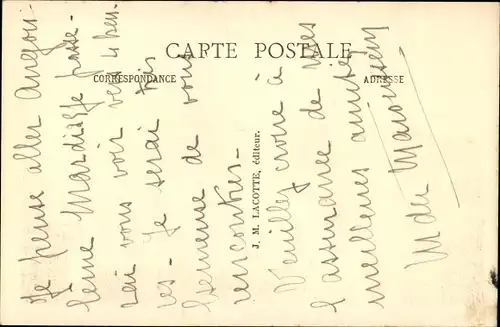 CARTE POSTALE
CORRESPONDANCE
ADRESSE
J. M. LACOTTE, éditeur.
Je pense aller Angou-
leme Mardi. Je passe-
rai vous voir vers 4 heu-
res - Je serai très
heureuse de vous
rencontrer -
Veuillez croire à
l'assurance de mes
meilleures amitiés
M de